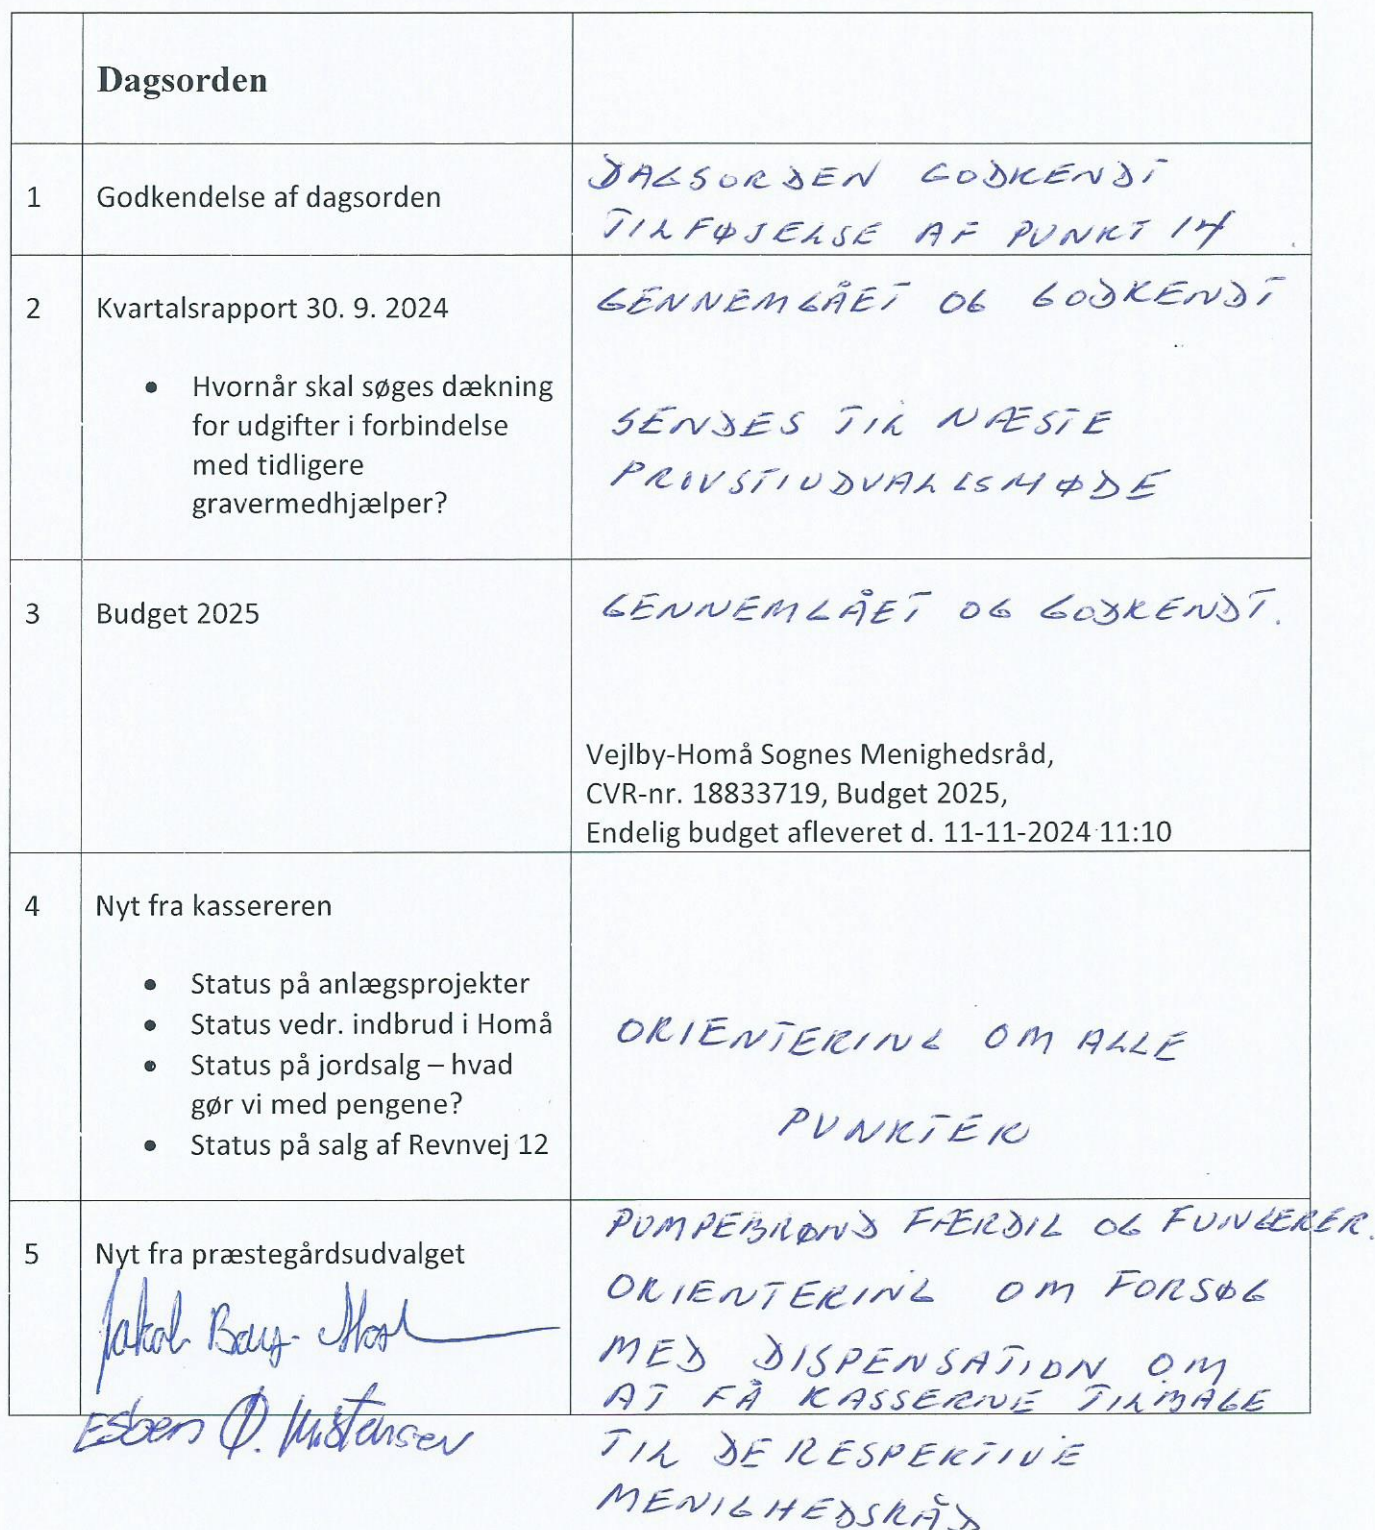 Dagsorden
1
Godkendelse af dagsorden
DAGSORDEN GODKENDT
TILFØJELSE AF PUNKT 14
2
Kvartalsrapport 30. 9. 2024
GENNEMGÅET OG GODKENDT
• Hvornår skal søges dækning
for udgifter i forbindelse
med tidligere
gravermedhjælper?
SENDES TIL NÆSTE
PROVSTIUDVALGSMØDE
3
Budget 2025
GENNEMGÅET OG GODKENDT.
Vejlby-Homå Sognes Menighedsråd,
CVR-nr. 18833719, Budget 2025,
Endelig budget afleveret d. 11-11-2024 11:10
4
Nyt fra kassereren
• Status på anlægsprojekter
• Status vedr. indbrud i Homå
• Status på jordsalg – hvad
gør vi med pengene?
• Status på salg af Revnvej 12
ORIENTERING OM ALLE
PUNKTER
5
Nyt fra præstegårdsudvalget
PUMPEBRØND FÆRDIG OG FUNGERER.
ORIENTERING OM FORSØG
MED DISPENSATION OM
AT FÅ KASSERNE TILBAGE
TIL DE RESPEKTIVE
MENIGHEDSRÅD
Jakob
Esben Ø.